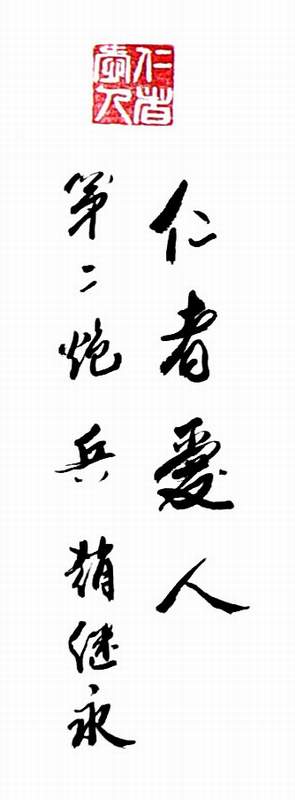 仁者愛人
仁者愛人
第二炮兵 趙继永